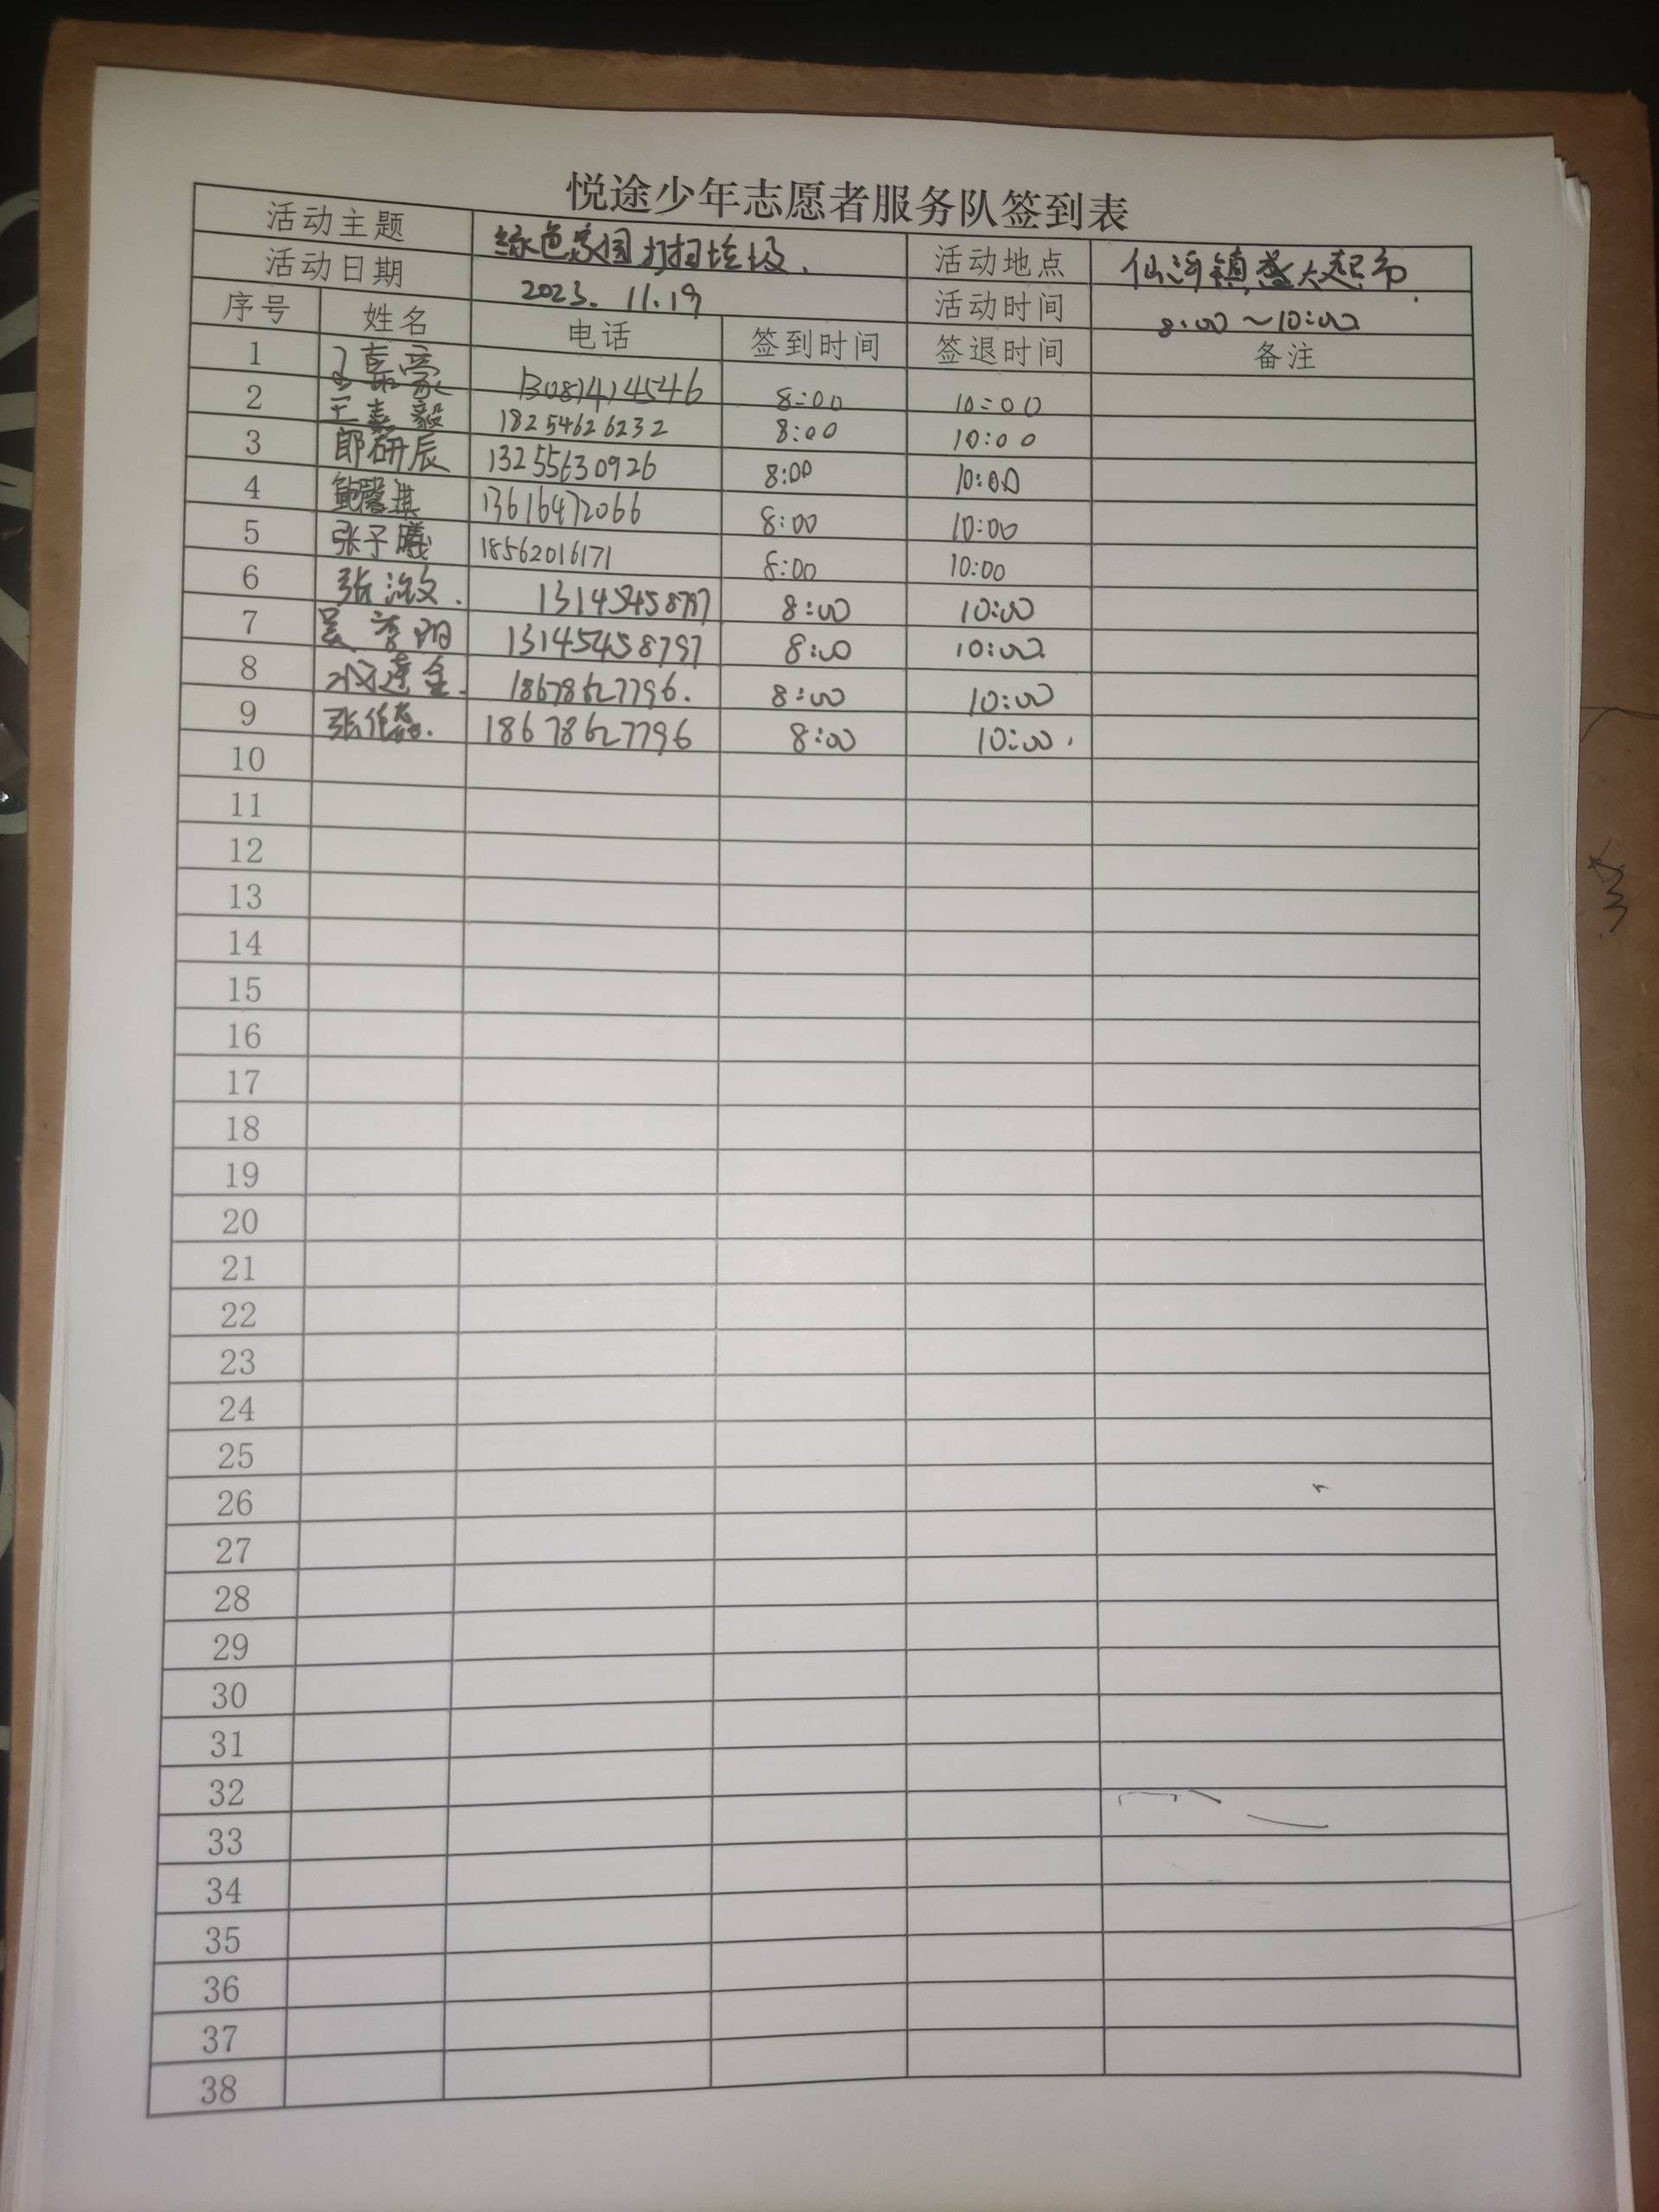 悦途少年志愿者服务队签到表
活动主题 绿色家园打扫垃圾. 活动地点 仙河镇盛大超市.
活动日期 2023. 11.19 活动时间 8:00～10:00
序号 姓名 电话 签到时间 签退时间 备注
1 王嘉豪 8:00 10:00
2 王嘉毅 18254626232 8:00 10:00
3 郎研辰 13255630926 8:00 10:00
4 鲍馨淇 13616472066 8:00 10:00
5 张子曦 18562016171 8:00 10:00
6 张 13145458797 8:00 10:00
7 吴 13145458797 8:00 10:00
8 18678627796. 8:00 10:00
9 张 18678627796 8:00 10:00.
10
11
12
13
14
15
16
17
18
19
20
21
22
23
24
25
26
27
28
29
30
31
32
33
34
35
36
37
38